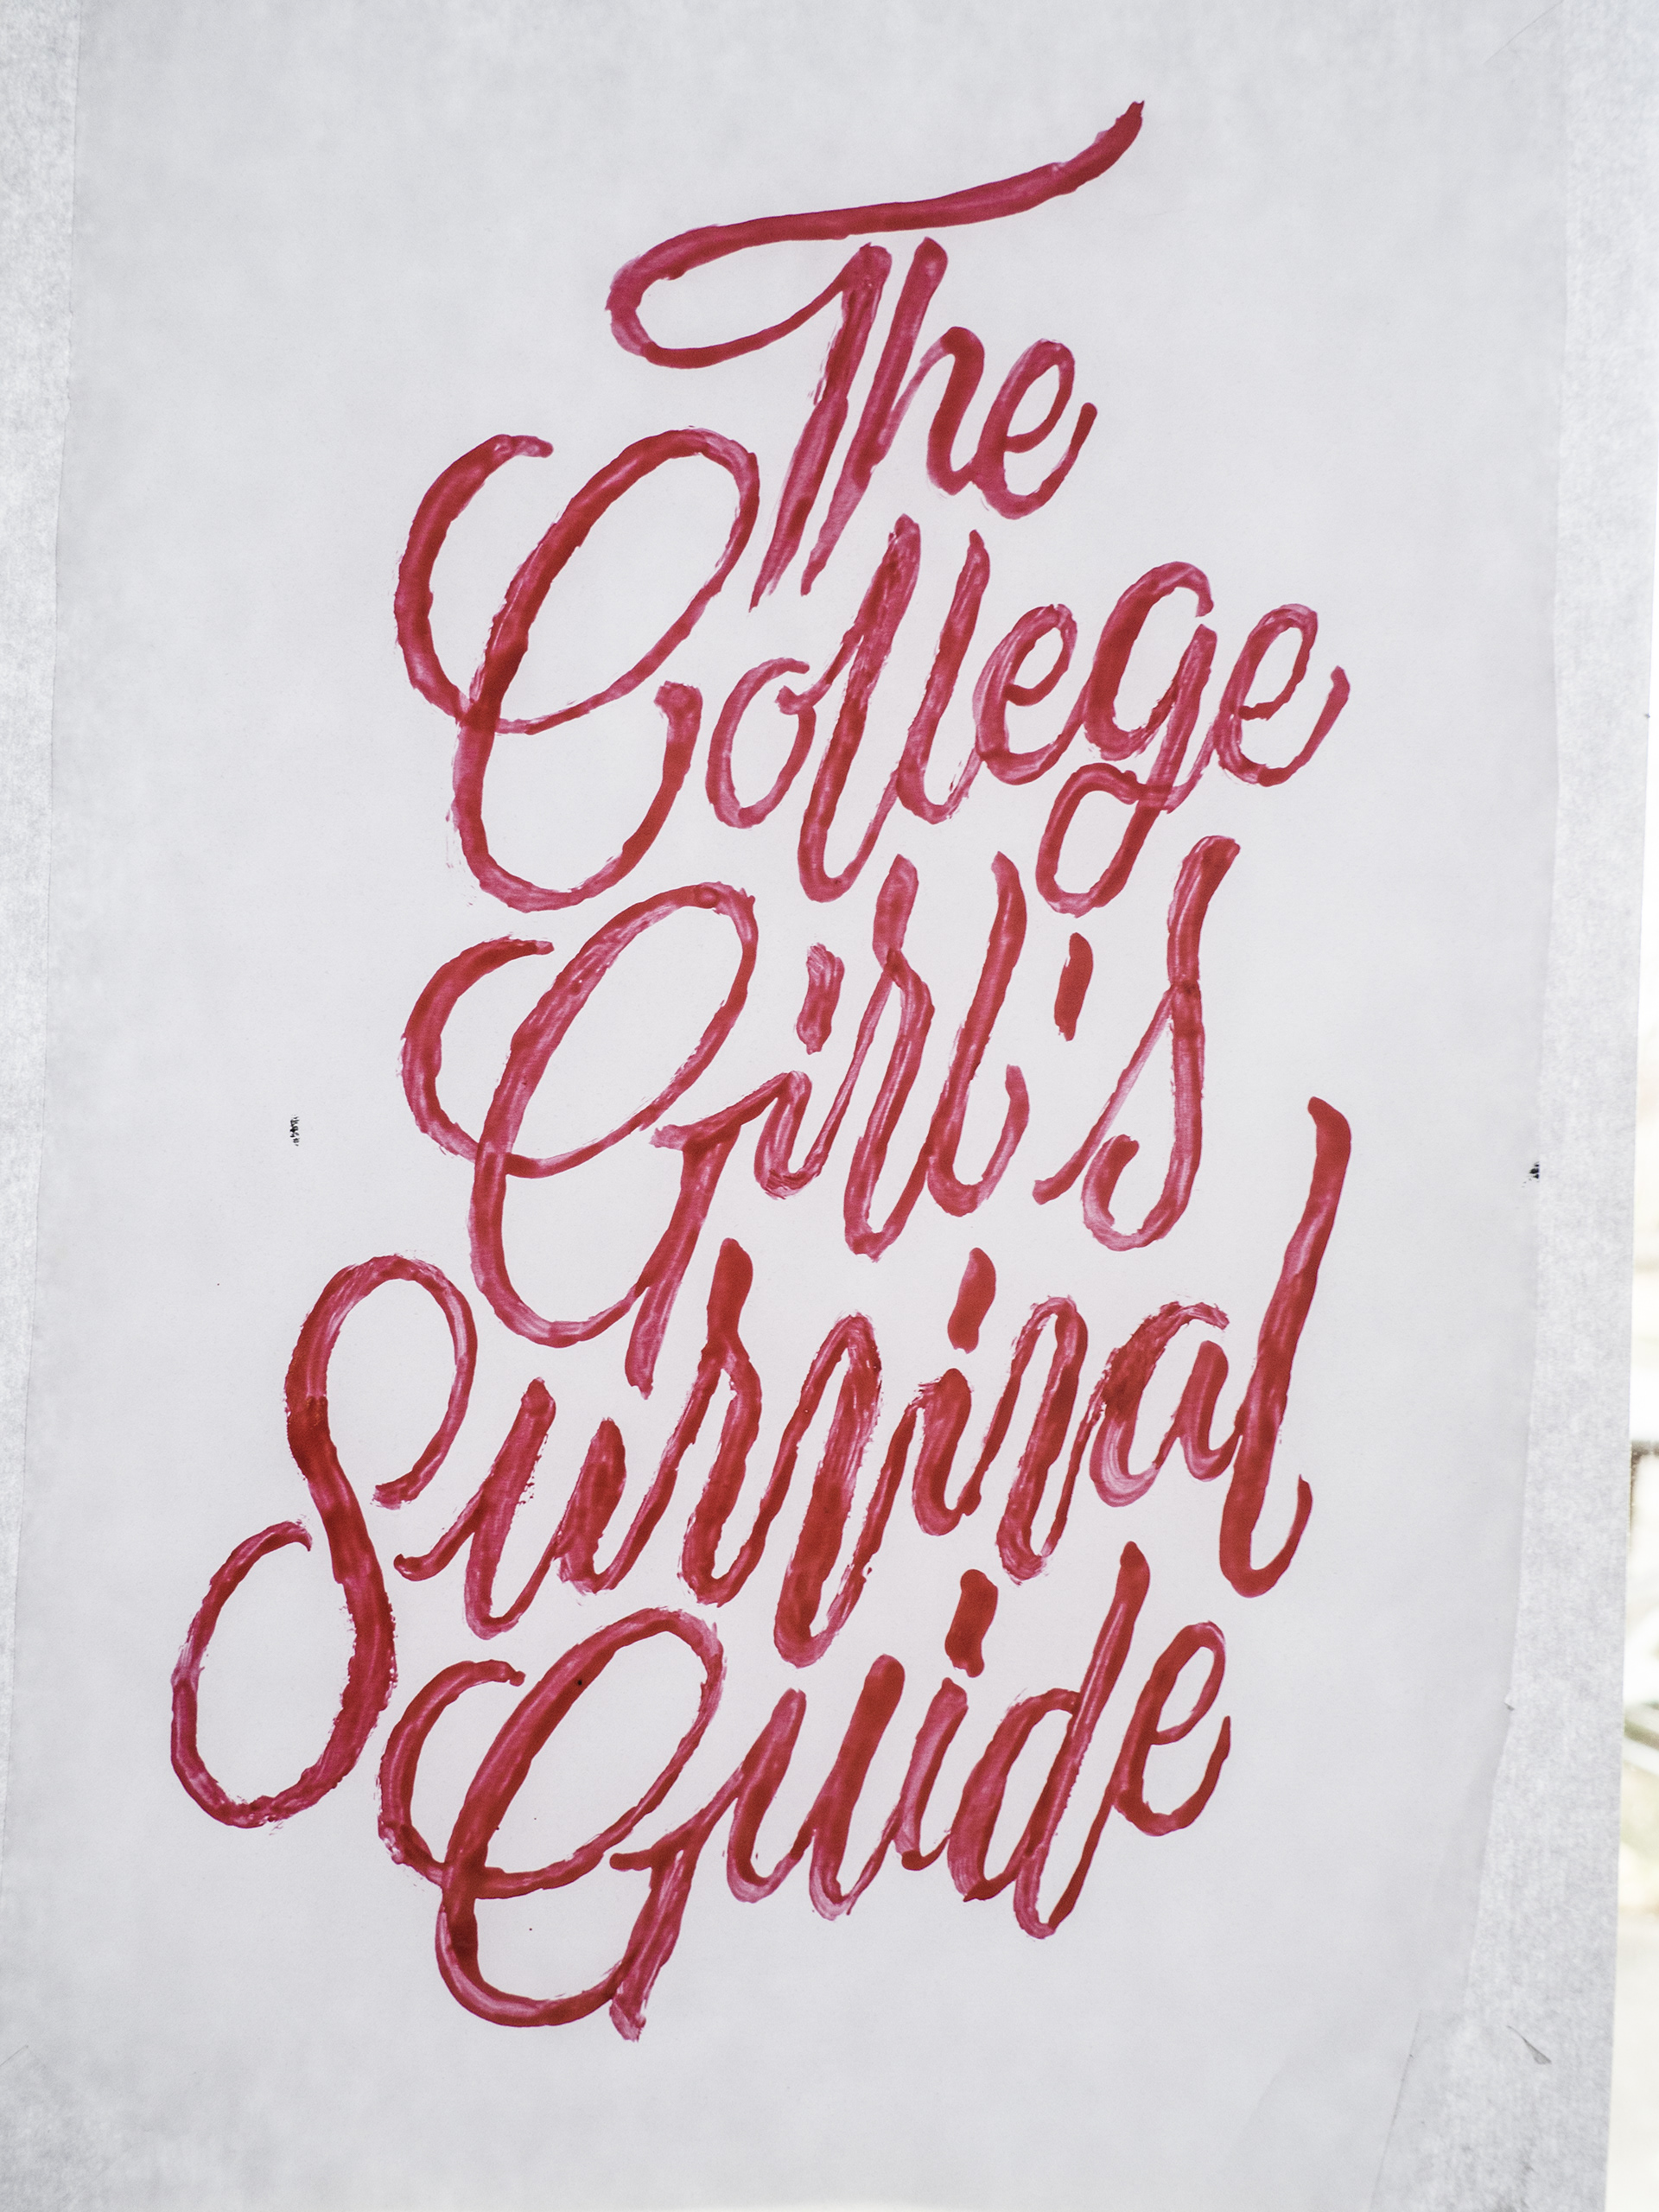 The
College
Girl's
Survival
Guide